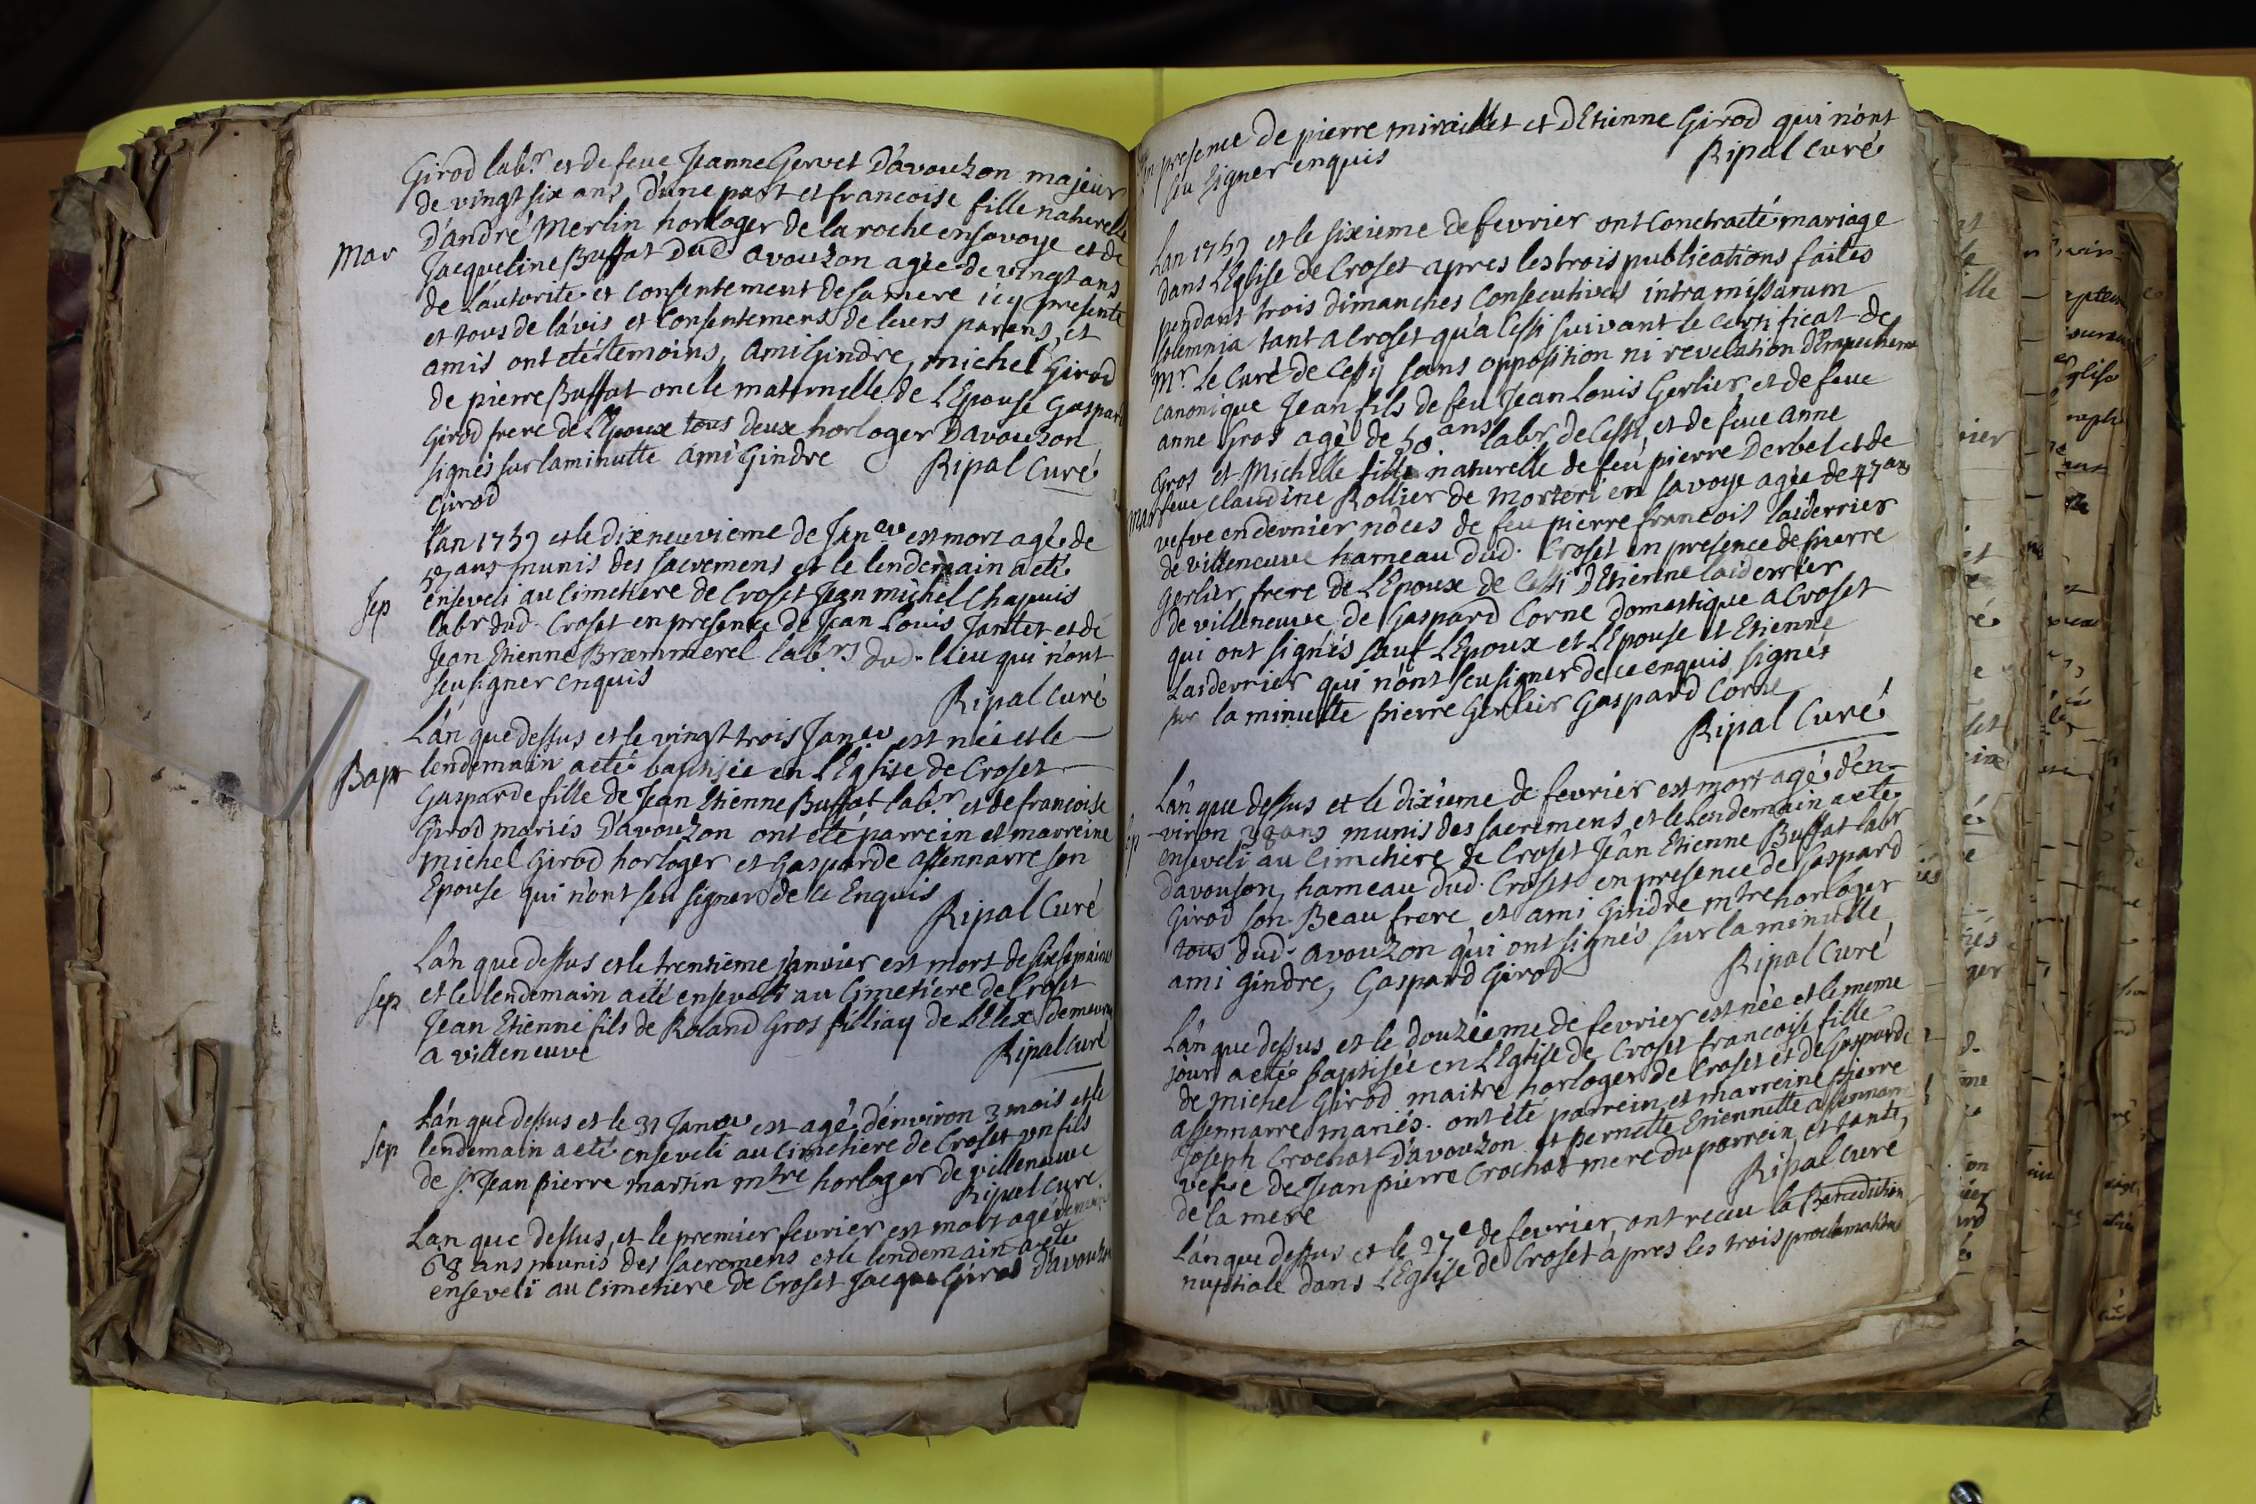 Girod lab.r et de feue Jeanne Gervet D'avouzon majeur
de vingt six ans d'une part et francoise fille naturelle
D'andré Merlin horloger de la roche en savoye et de
Mar
Jacqueline Buffat Dud avouzon agée de vingt ans
de l'autorité et Consentement de sa mere icy presente
et tous de l'avis et Consentemens de leurs parens, et
amis ont eté temoins, Ami Gindre, michel Girod
de pierre Buffat oncle maternelle de L'Epouse Gaspard
Girod frere de L'Epoux tous deux horloger Davouzon
signés sur la minutte Ami Gindre Ripal Curé
Girod
l'an 1759 et le dix neuvieme de Jan.er est mort agé de
57 ans munis des sacremens et le lendemain a eté
Sep
enseveli au Cimetiere de Croset Jean michel Chapuis
labr dud. Croset en presence de Jean Louis Jantet et de
Jean Etienne Bræmmerel lab.rs dud. lieu qui n'ont
seu signer enquis
Ripal Curé
L'an que dessus et le vingt trois Jan.er est née et le
Bapt
lendemain a eté baptisée en L'Eglise de Croset
Gasparde fille de Jean Etienne Buffat lab.r et de francoise
Girod mariés D'avouzon ont eté parrein et marreine
Michel Girod horloger et Gasparde assennarre son
Epouse qui n'ont seu signer de ce Enquis
Ripal Curé
L'an que dessus et le trentieme janvier est mort de six semaines
Sep
et le lendemain a eté enseveli au Cimetiere de Croset
Jean Etienne fils de Roland Gros filliay de L'Elex
a villeneuve
Ripal Curé
L'an que dessus et le 31 Jan.er est agé d'environ 3 mois et le
Sep
lendemain a eté enseveli au Cimetiere de Croset un fils
de S.r Jean pierre martin mtre horloger de villeneuve
Ripal Curé
L'an que dessus, et le premier fevrier est mort agé
68 ans munis des sacremens et le lendemain a eté
enseveli au Cimetiere de Croset Jacque Girod D'avouzon
En presence de pierre miraillet et D'Etienne Girod qui n'ont
seu signer enquis
Ripal Curé
L'an 1759 et le sixieme de fevrier ont Contracté mariage
dans L'Eglise de Croset apres les trois publications faites
pendant trois dimanches Consecutives intra missarum
solemnia tant a Croset qu'a Cessi suivant le certificat de
Mr. Le Curé de Cessy sans opposition ni revelation d'Empechemt
canonique Jean fils de feu Jean Louis Gerlier et de feue
anne Gros agé de 50 ans labr de Cessi, et de feue anne
Gros et Michelle fille naturelle de feu pierre Derbel et de
Mar
feue Claudine Rollier de Morteri en savoye agée de 47 ans
vefve en dernier noces de feu pierre francois laiderrier
de villeneuve hameau dud. Croset en presence de pierre
Gerlier frere de L'Epoux de Cessi D'Etienne laiderrier
de villeneuve de Gaspard Corne domestique a Croset
qui ont signés sauf L'Epoux et L'Epouse et Etienne
Laiderrier qui n'ont seu signer de ce enquis signés
sur la minutte pierre Gerlier Gaspard Corne
Ripal Curé
L'an que dessus et le dixieme de fevrier est mort agé d'en-
viron 28 ans munis des sacremens et le lendemain a eté
enseveli au Cimetiere de Croset Jean Etienne Buffat labr
d'avouson, hameau dud. Croset en presence de Gaspard
Girod son Beau frere et ami Gindre mtre horloger
tous dud. avouzon qui ont signés sur la minutte
ami Gindre, Gaspard Girod
Ripal Curé
L'an que dessus et le douzieme de fevrier est née et le meme
jour a eté baptisée en L'Eglise de Croset francoise fille
de michel Girod maitre horloger de Croset et de Gasparde
assennarre mariés. ont été parrein et marreine pierre
Joseph Crochat D'avouzon et pernette Etiennette assennarre
vefve de Jean pierre Crochat mere du parrein et tante,
de la mere
Ripal Curé
L'an que dessus et le 27e de fevrier ont receu la Benediction
nuptiale dans L'Eglise de Croset àpres les trois proclamations